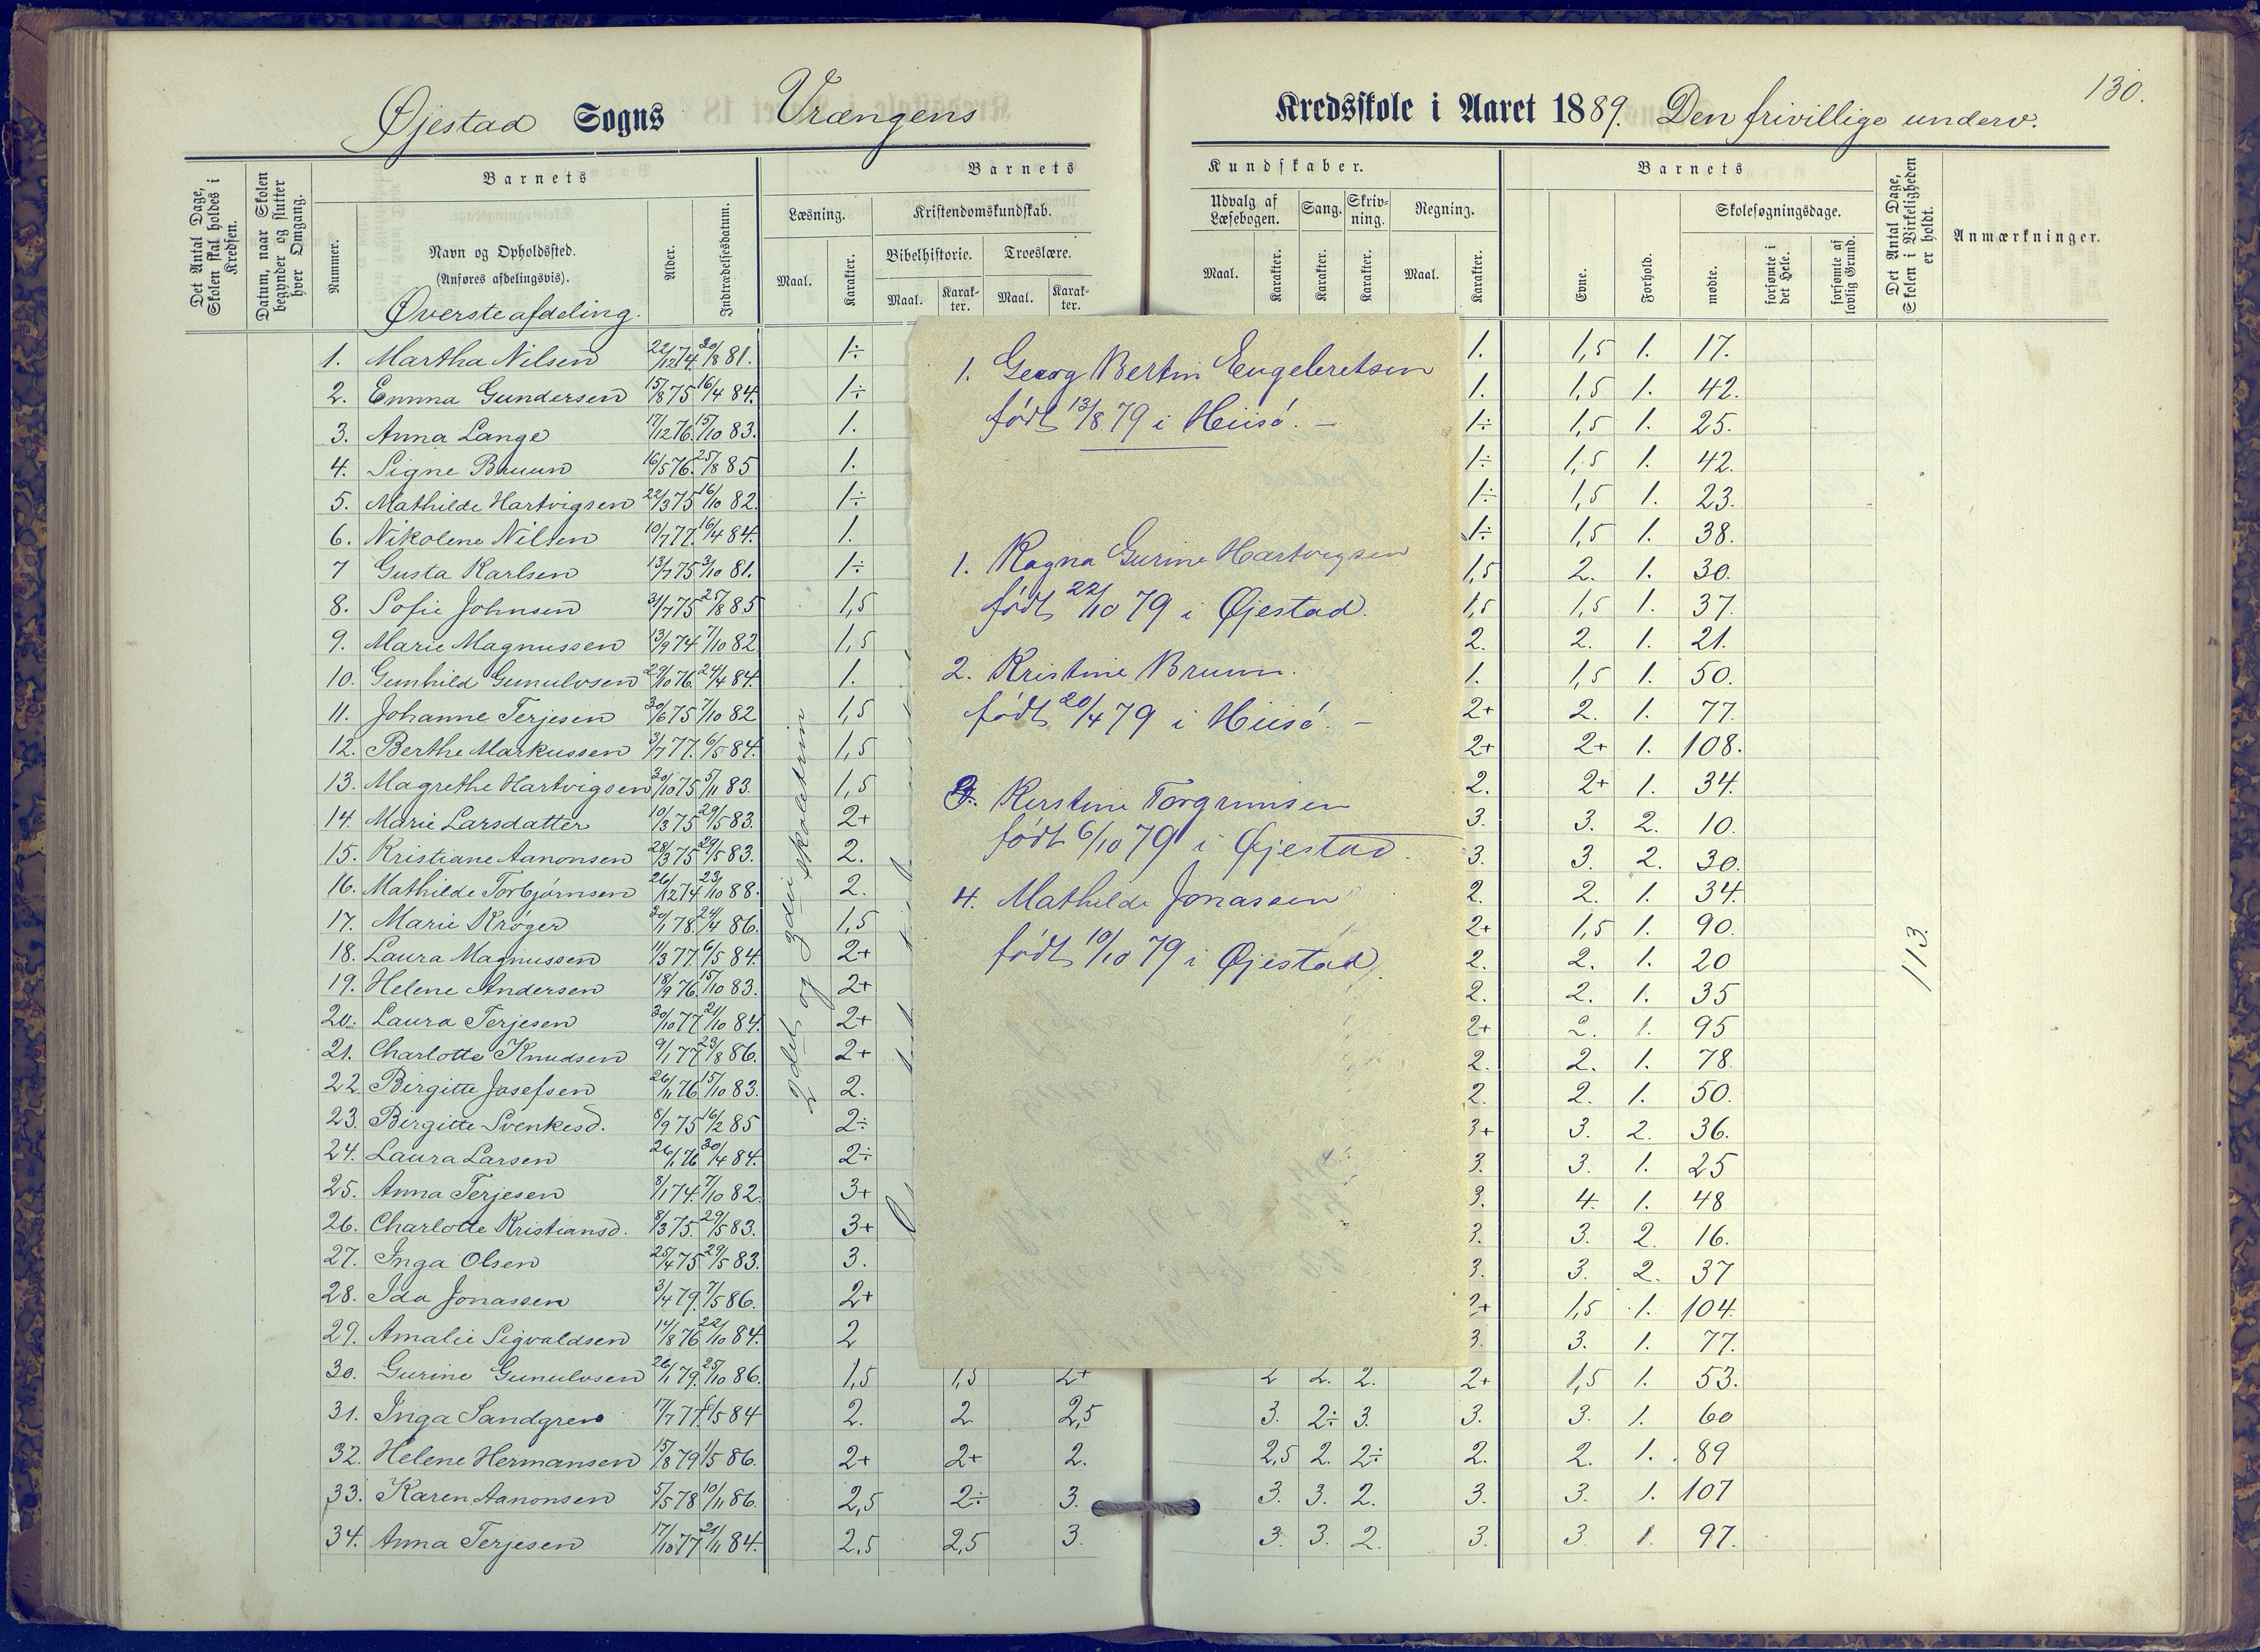 130.
Øjestad Sogns Vrængens Kredsskole i Aaret 1889. Den frivillige underv.
Det Antal Dage, Skolen skal holdes i Kredsen.
Datum, naar Skolen begynder og slutter hver Omgang.
Barnets
Nummer.
Navn og Opholdssted.
(Anføres afdelingsvis).
Alder.
Indtrædelsesdatum.
Barnets Kundskaber.
Læsning.
Maal. Karakter.
Kristendomskundskab.
Bibelhistorie. Troeslære.
Maal. Karakter. Maal. Karakter.
Udvalg af Læsebogen. Sang. Skrivning. Regning.
Maal. Karakter. Karakter. Karakter. Maal. Karakter.
Barnets
Evne. Forhold.
Skolesøgningsdage.
mødte. forsømte i det Hele. forsømte af lovlig Grund.
Det Antal Dage, Skolen i Virkeligheden er holdt.
Anmærkninger.
Øverste afdeling.
1. Martha Nilsen 22/12 74. 30/8 81. 1÷ 1. 1,5 1. 17.
2. Emma Gundersen 15/8 75 16/4 84. 1÷ 1. 1,5 1. 42.
3. Anna Lange 17/12 76. 15/10 83. 1. 1÷ 1,5 1. 25.
4. Signe Bruun 16/5 76. 25/8 85 1. 1÷ 1,5 1. 42.
5. Mathilde Hartvigsen 22/3 75 16/10 82. 1÷ 1÷ 1,5 1. 23.
6. Nikolene Nilsen 10/7 77. 16/4 84. 1. 1÷ 1,5 1. 38.
7 Gusta Karlsen 13/7 75 3/10 81. 1÷ 1,5 2. 1. 30.
8. Sofie Johnsen 31/7 75 25/8 85 1,5 1,5 1,5 1. 37.
9. Marie Magnussen 13/9 74 7/10 82 1,5 2. 2. 1. 21.
10. Gunhild Gunulvsen 29/10 76. 24/4 84. 1. 1. 1,5 1. 50.
11. Johanne Terjesen 30/6 75 7/10 82 1,5 2+ 2. 1. 77.
12. Berthe Markussen 3/7 77. 6/5 84. 1,5 2+ 2+ 1. 108.
13. Magrethe Hartvigsen 30/10 75 5/11 83. 1,5 2. 2+ 1. 34.
14. Marie Larsdatter 10/3 75 29/5 83. 2+ 3. 3. 2. 10.
15. Kristiane Aanonsen 28/3 75 29/5 83. 2. 3. 3. 2. 30.
16. Mathilde Torbjørnsen 26/12 74 23/10 88. 2. 2. 2. 1. 34.
17. Marie Krøger 30/1 78. 24/4 86. 1,5 2+ 1,5 1. 90.
18. Laura Magnussen 11/3 77 6/5 84. 2+ 2. 2. 1. 20
19. Helene Andersen 18/9 76. 15/10 83. 2+ 2. 2. 1. 35
20. Laura Terjesen 30/10 77 21/10 84. 2+ 2+ 2. 1. 95
21. Charlotte Knudsen 9/1 77 23/8 86. 2+ 2. 2. 1. 78
22. Birgitte Josefsen 26/11 76 15/10 83. 2. 2. 2. 1. 50.
23. Birgitte Svenkesd. 8/9 75 16/2 85 2÷ 3+ 3. 2. 36.
24. Laura Larsen 26/1 76 30/4 84. 2÷ 3. 3. 1. 25
25. Anna Terjesen 8/1 74. 7/10 82. 3+ 3. 4. 1. 48
26. Charlotte Kristiansd. 8/3 75. 29/5 83. 3+ 3. 3. 2. 16.
27. Inga Olsen 25/4 75 29/5 83. 3. 3. 3. 2. 37
28. Ida Jonassen 3/4 79. 7/5 86. 2+ 2+ 1,5 1. 104.
29. Amalie Sigvaldsen 14/8 76 22/10 84. 2 3. 3. 1. 77.
30. Gurine Gunulvsen 26/1 79. 25/10 86. 1,5 1,5 2+ 2 2. 2. 2+ 1,5 1. 53.
31. Inga Sandgren 17/7 77. 6/5 84 2. 2 2,5 3. 2÷ 3. 3. 3. 1. 60
32. Helene Hermansen 15/8 79 1/5 86. 2+ 2+ 2. 2,5 2. 2÷ 2. 2. 1. 89
33. Karen Aanonsen 5/5 78 10/11 86. 2,5 2÷ 3. 3. 3. 2. 3. 3. 1. 107
34. Anna Terjesen 17/10 77 21/11 84. 2,5 2,5 3. 3. 3. 2. 3. 3 1. 97.
2det og 3die skoletrin
113.
1. Georg Bertin Engebretsen
født 13/8 79 i Hiisö. –
1. Ragna Gurine Hartvigsen
født 22/10 79 i Øjestad.
2. Kristine Bruun.
født 20/4 79 i Hiisö. –
3. Kirstine Torgrimsen
født 6/10 79 i Øjestad.
4. Mathilde Jonassen
født 10/10 79 i Øjestad.